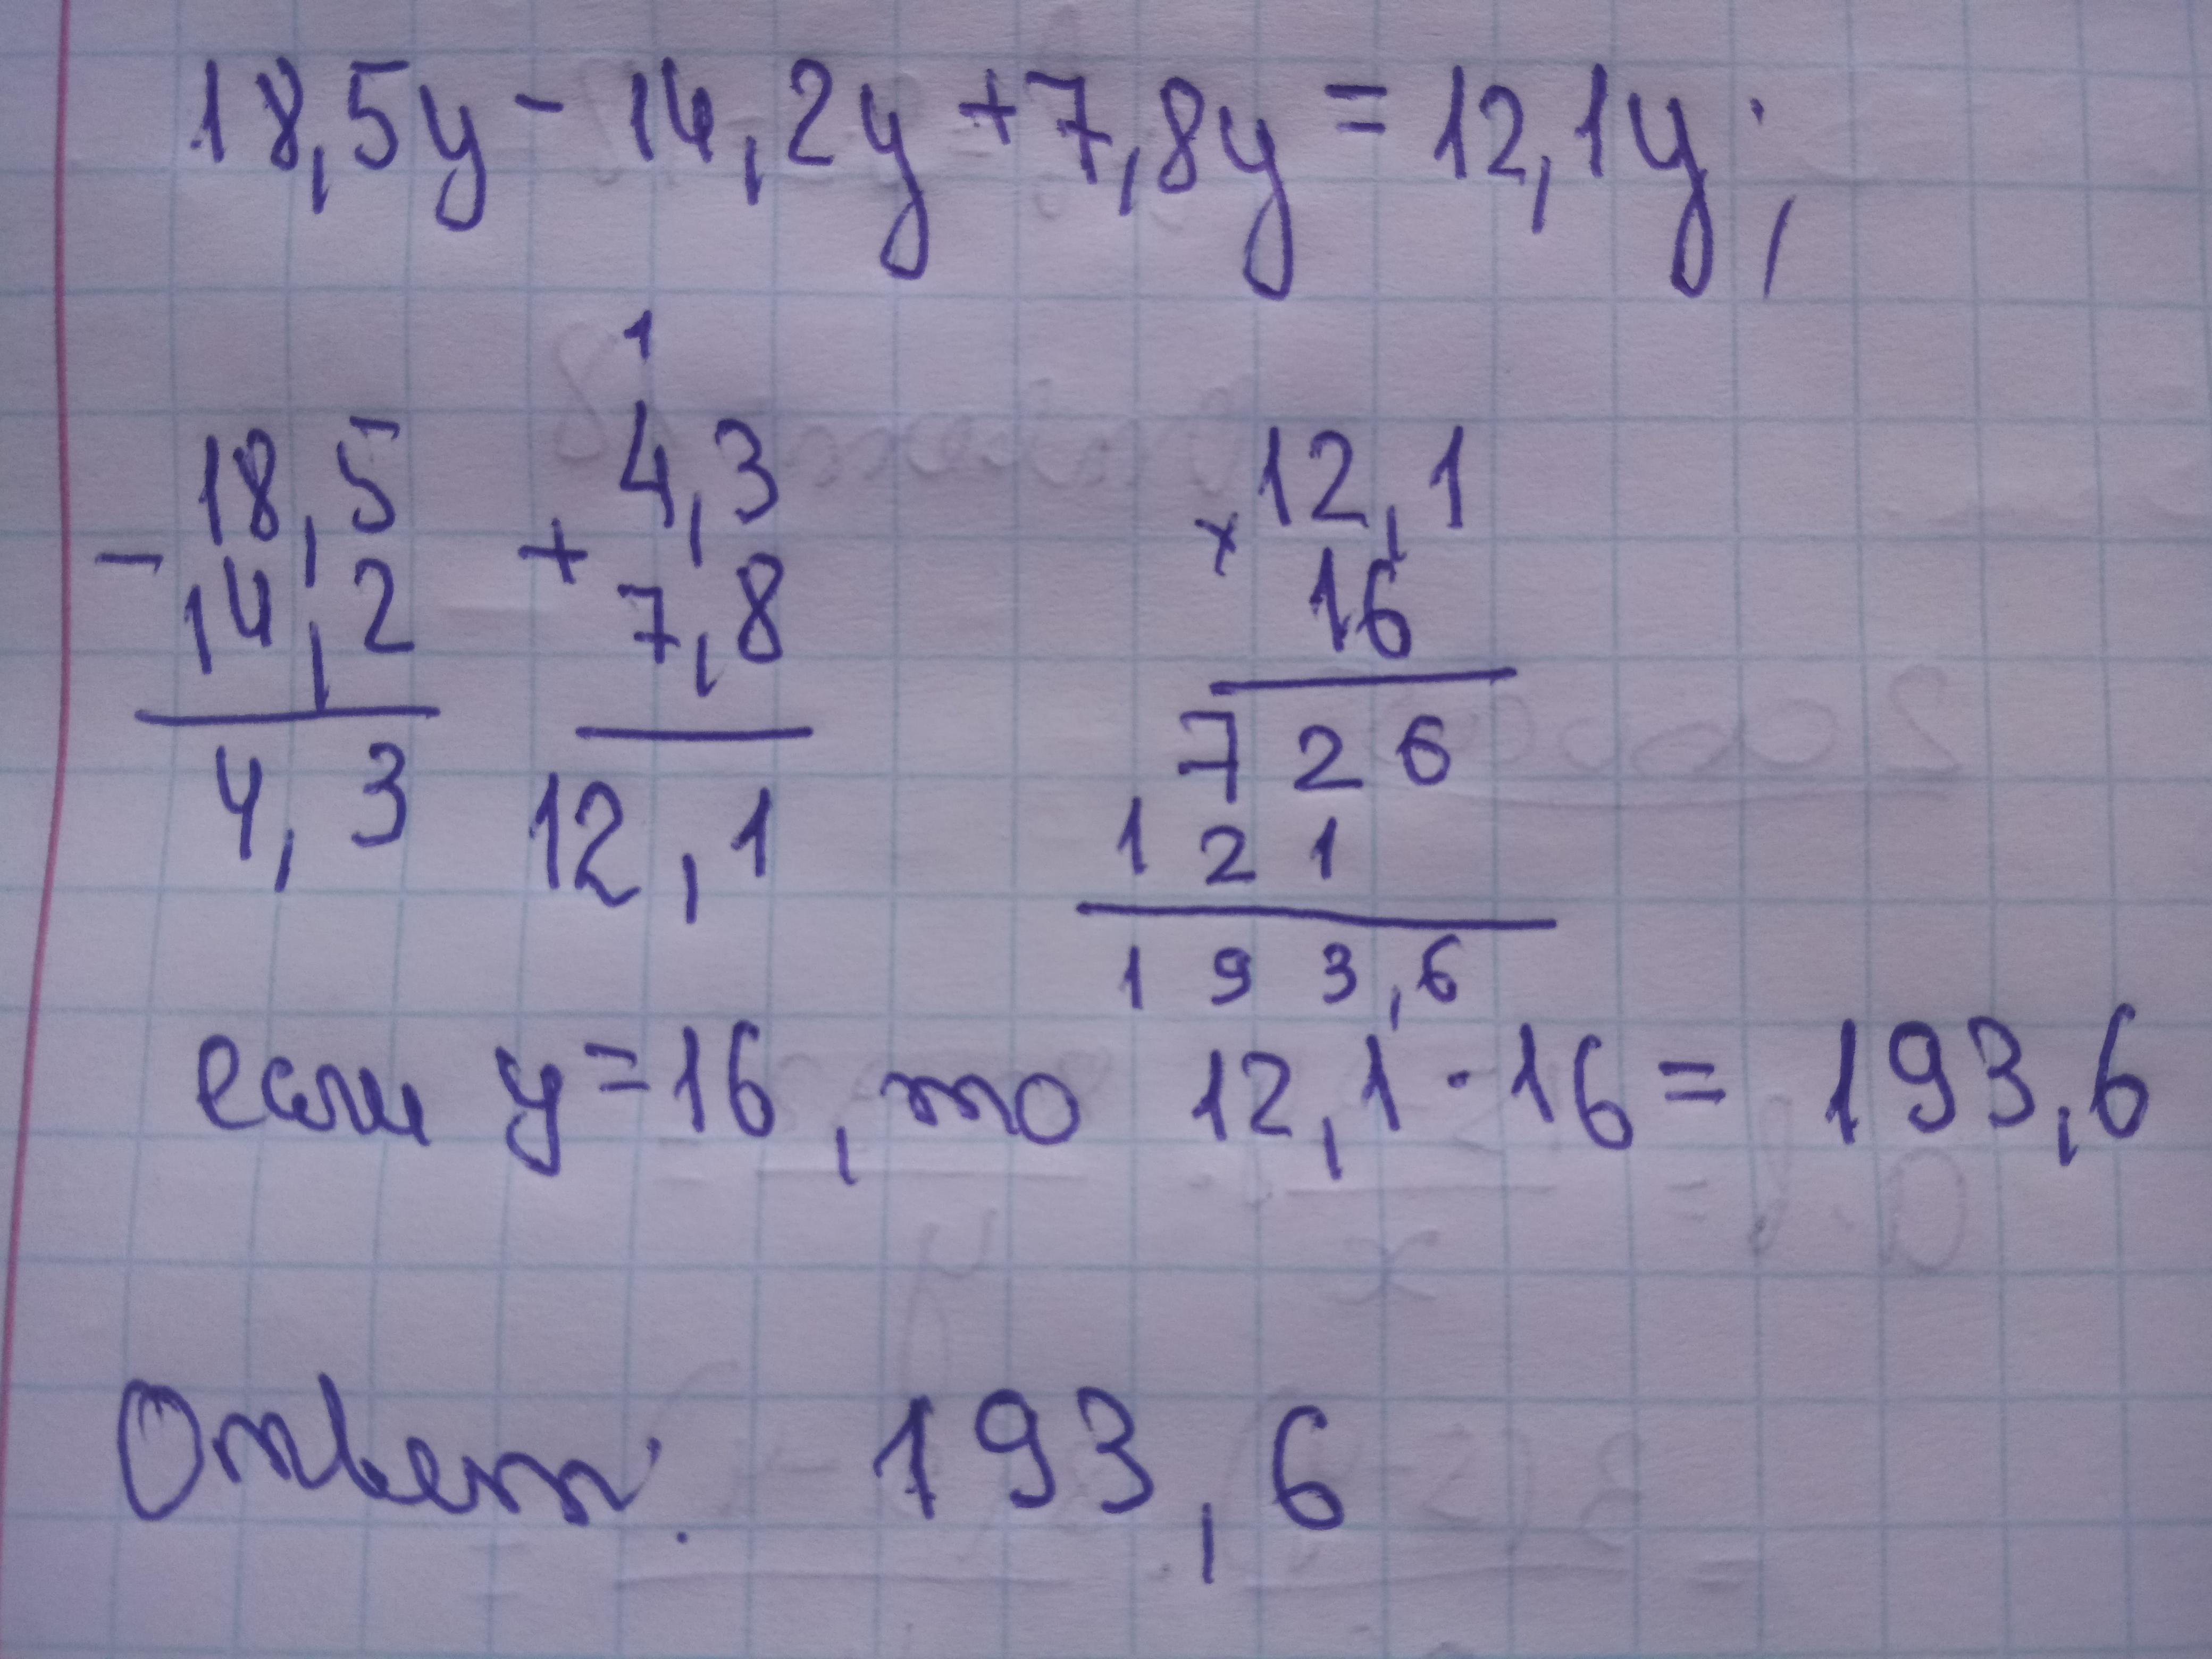 18,5y - 14,2y + 7,8y = 12,1y;
1
- 18,5 + 4,3 × 12,1
14,2 7,8 16
4,3 12,1 726
121
193,6
если y = 16, то 12,1 · 16 = 193,6
Ответ: 193,6